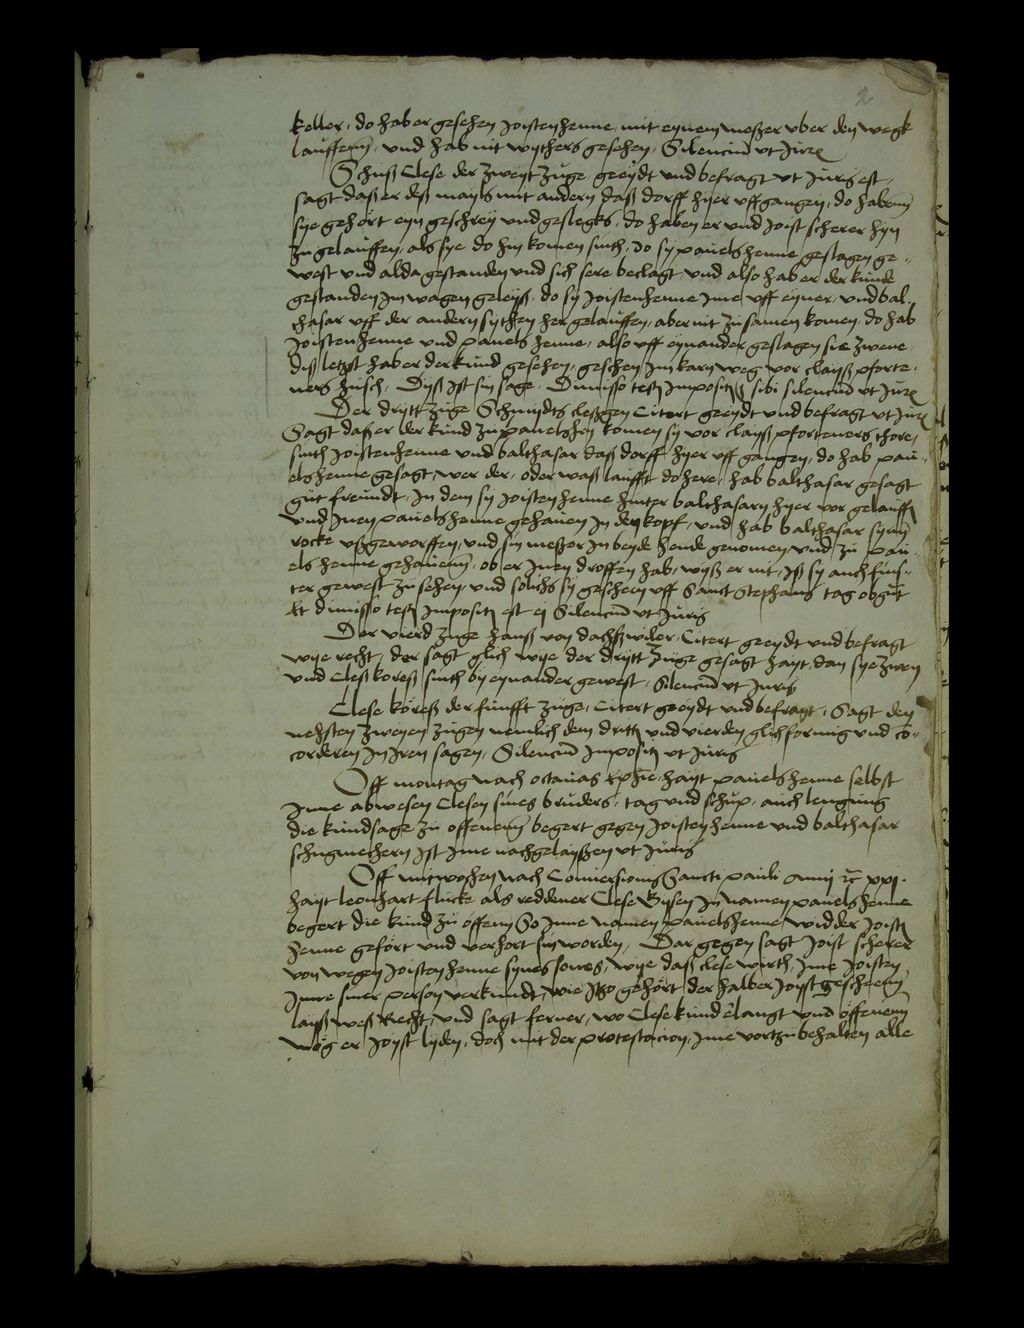 2
keller, do hab er gesehen Joisten henne, mit eynem messer uber den wegk
lauffenn, und hab nit wythers gesehen, Silencium ut Jure
Schuß Clese der zweyt zuge geeydt und befragt ut Juris est,
sagt daß er deß mayls mit andern daß dorff hyer uffgangen, do habenn
sye gehort eyn geschrey und geslegks, do haben er und Joist scherer hyn
zu gelauffen, als sye do hin komen sinth, do sy pauels henne geslagen ge-
west und alda gestanden und sich sere beclagt, und also hab er der kunde
gestanden Jm wagen geleyß, do sy Joistenhenne Jme uff eyner, und bal-
thasar uff der andern sythen her gelauffen, aber nit zusamen komen, do hab
Joistenhenne und pauels henne, also uff eynander geslagen sie zwene,
diß letzst hab er der kund gesehen, geschen Jm karn weg vor clayß pforte-
ners husch, Dyß Jst sin sage, Dimisso teste Imposito sibi silencium ut Jure
Der drytt zuge Schmydts cleßgen Citert geeydt und befragt ut Jure
Sagt daß er der kund zu pauelshen komen sy vor clayß pforteners thore,
sinth Joistenhenne und balthasar daß dorff hyer uff gangen, do hab pau-
els henne gesagt, wer der, oder waß laufft do here, hab balthasar gesagt
gut freundt, In dem sy Joisten henne hinter balthasarn hyer vor gelauffen
und Jnen pauelshenne gehauen In den kopf, und hab balthasar synn
rocke ußgeworffen, und sin messer In beyde hende genomen, und zu pau-
els henne gehauenn, ob er Jnen droffen hab, wyß er nit, Jß sy auch fins-
ter gewest zu sehen, und solichs sy gescheen uff Sanct Stephans tag
et dimisso teste Imposito est ei Silencium ut Juris
Der vierd zuge hanß von dachßwiler, Citert geeydt und befragt
wye recht, der sagt glich wye der drytt zuge gesagt hayt, dan sye zweyn
und Cleß koreß sinth by eynander gewest, Silencium ut Juris
Clese koreß der funfft zuge, Citert geeydt und befragt, Sagt den
nehsten zweyen zugen nemlich dem dritten und vierden glichformig und co-
corderen In Jren sagen, Silencium Imposito ut Juris
Off montag nach octavas hayt pauels henne selbst
Jnne abwesen Clesen sines bruders, tag und schup, auch lengnung
die kundsage zu offenenn begert gegen Joisten henne und balthasar
schumechern Jst Jme nachgelayßen ut Juris
Off mitwochen nach Conversionis Sancti pauli Anno xxj.
hayt leonhart flucke als reddener Clese Bysen In namen pauels henne
begert die kund zu offenn So Jnne namen pauelshenne, widder Joisten
henne gefort und verhort sin worden, Dar gegen sagt Joist scherer
von wegen Joisten henne synes sones, wye daß clese wirth, Jme Joisten
Jnne siner person verkundt, wie Itzo gehort, der halber Joyst gescheenn
layß weß Recht, und sagt ferner, wo Clese kund elangt und offenenn
mog er Joyst lyden, doch mit der protestacion, Jme vorthubehalten alle